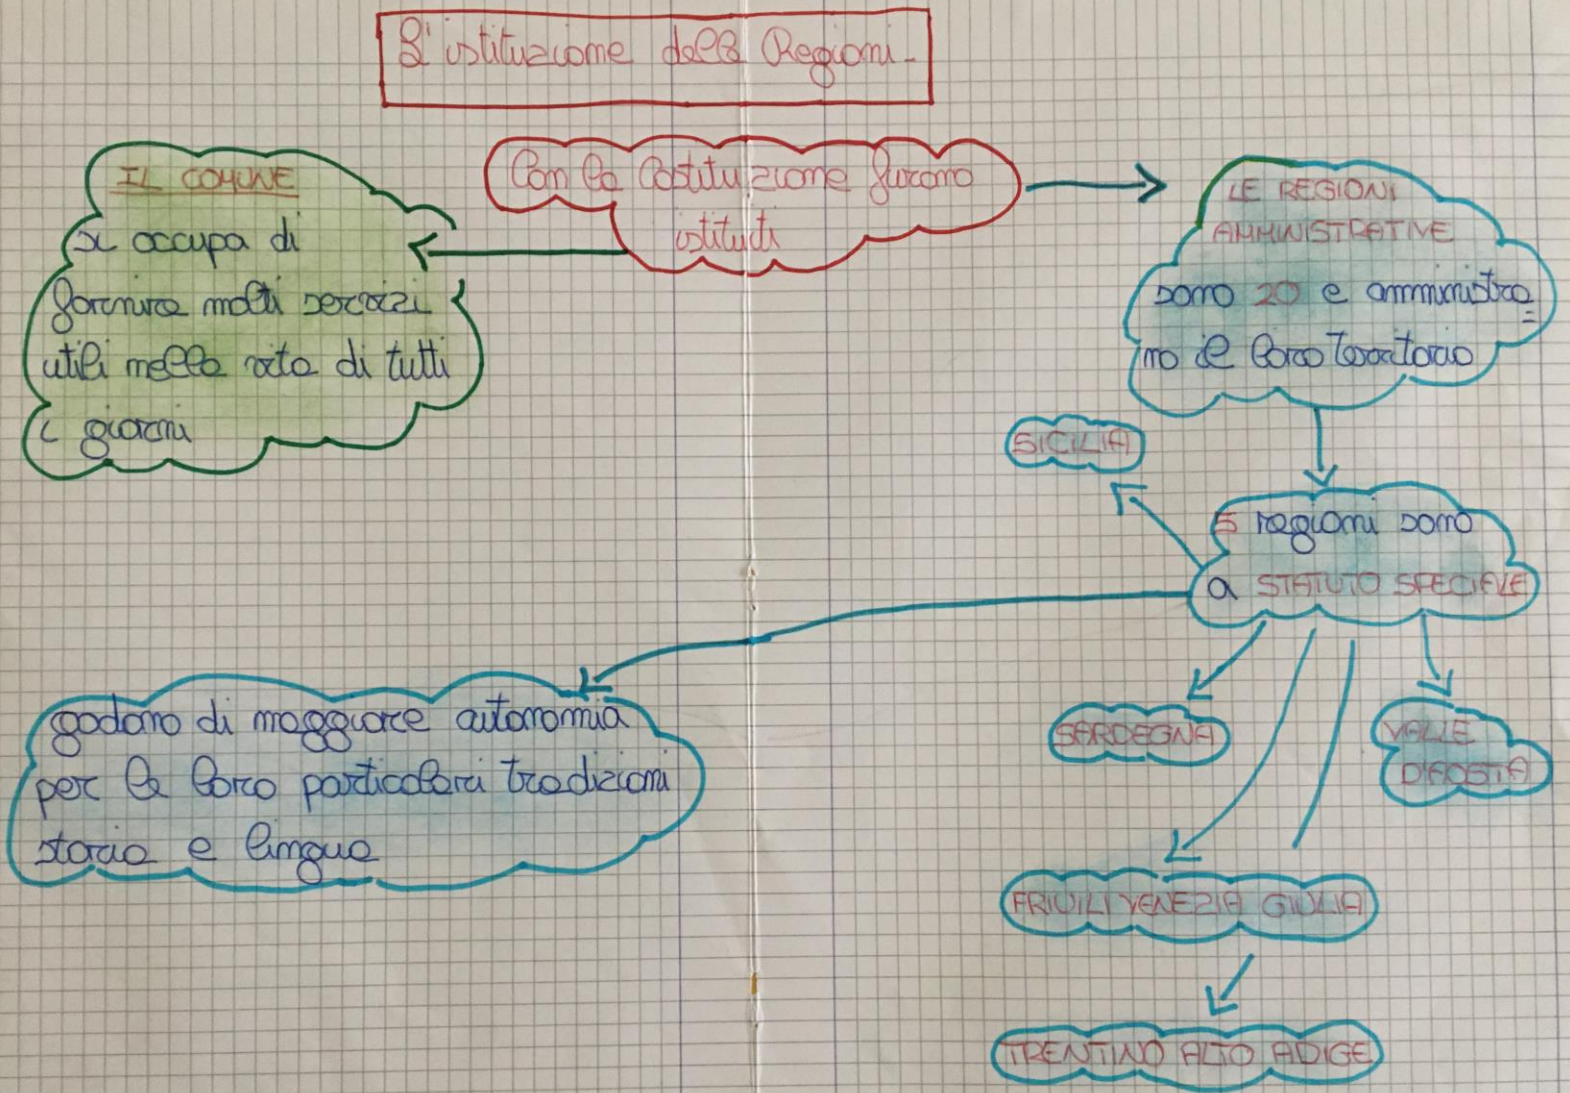 L'istituzione delle Regioni.
Con la Costituzione furono
istituiti
IL COMUNE
si occupa di
fornire molti servizi
utili nella vita di tutti
i giorni
LE REGIONI
AMMINISTRATIVE
sono 20 e amministra=
no il loro territorio
SICILIA
5 regioni sono
a STATUTO SPECIALE
godono di maggiore autonomia
per le loro particolari tradizioni
storia e lingua
SARDEGNA
VALLE
D'AOSTA
FRIULI VENEZIA GIULIA
TRENTINO ALTO ADIGE